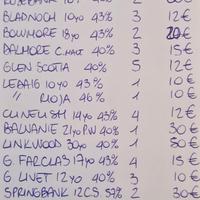 BLADNOCH 10yo 43% 3 12€
BOWMORE 18yo 43% 2 20€
DALMORE C.MALT 40% 3 15€
GLEN SCOTIA 40% 5 12€
LEDAIG 10yo 43% 1 10€
" RIOJA 46% 1 10€
CLYNELISH 14yo 43% 4 12€
BALVENIE 21yo P.W 40% 1 30€
LINKWOOD 30yo 40% 1 50€
G. FARCLAS 17yo 43% 4 15€
G LIVET 12yo 40% 3 10€
SPRINGBANK 12 C.S. 2 30€